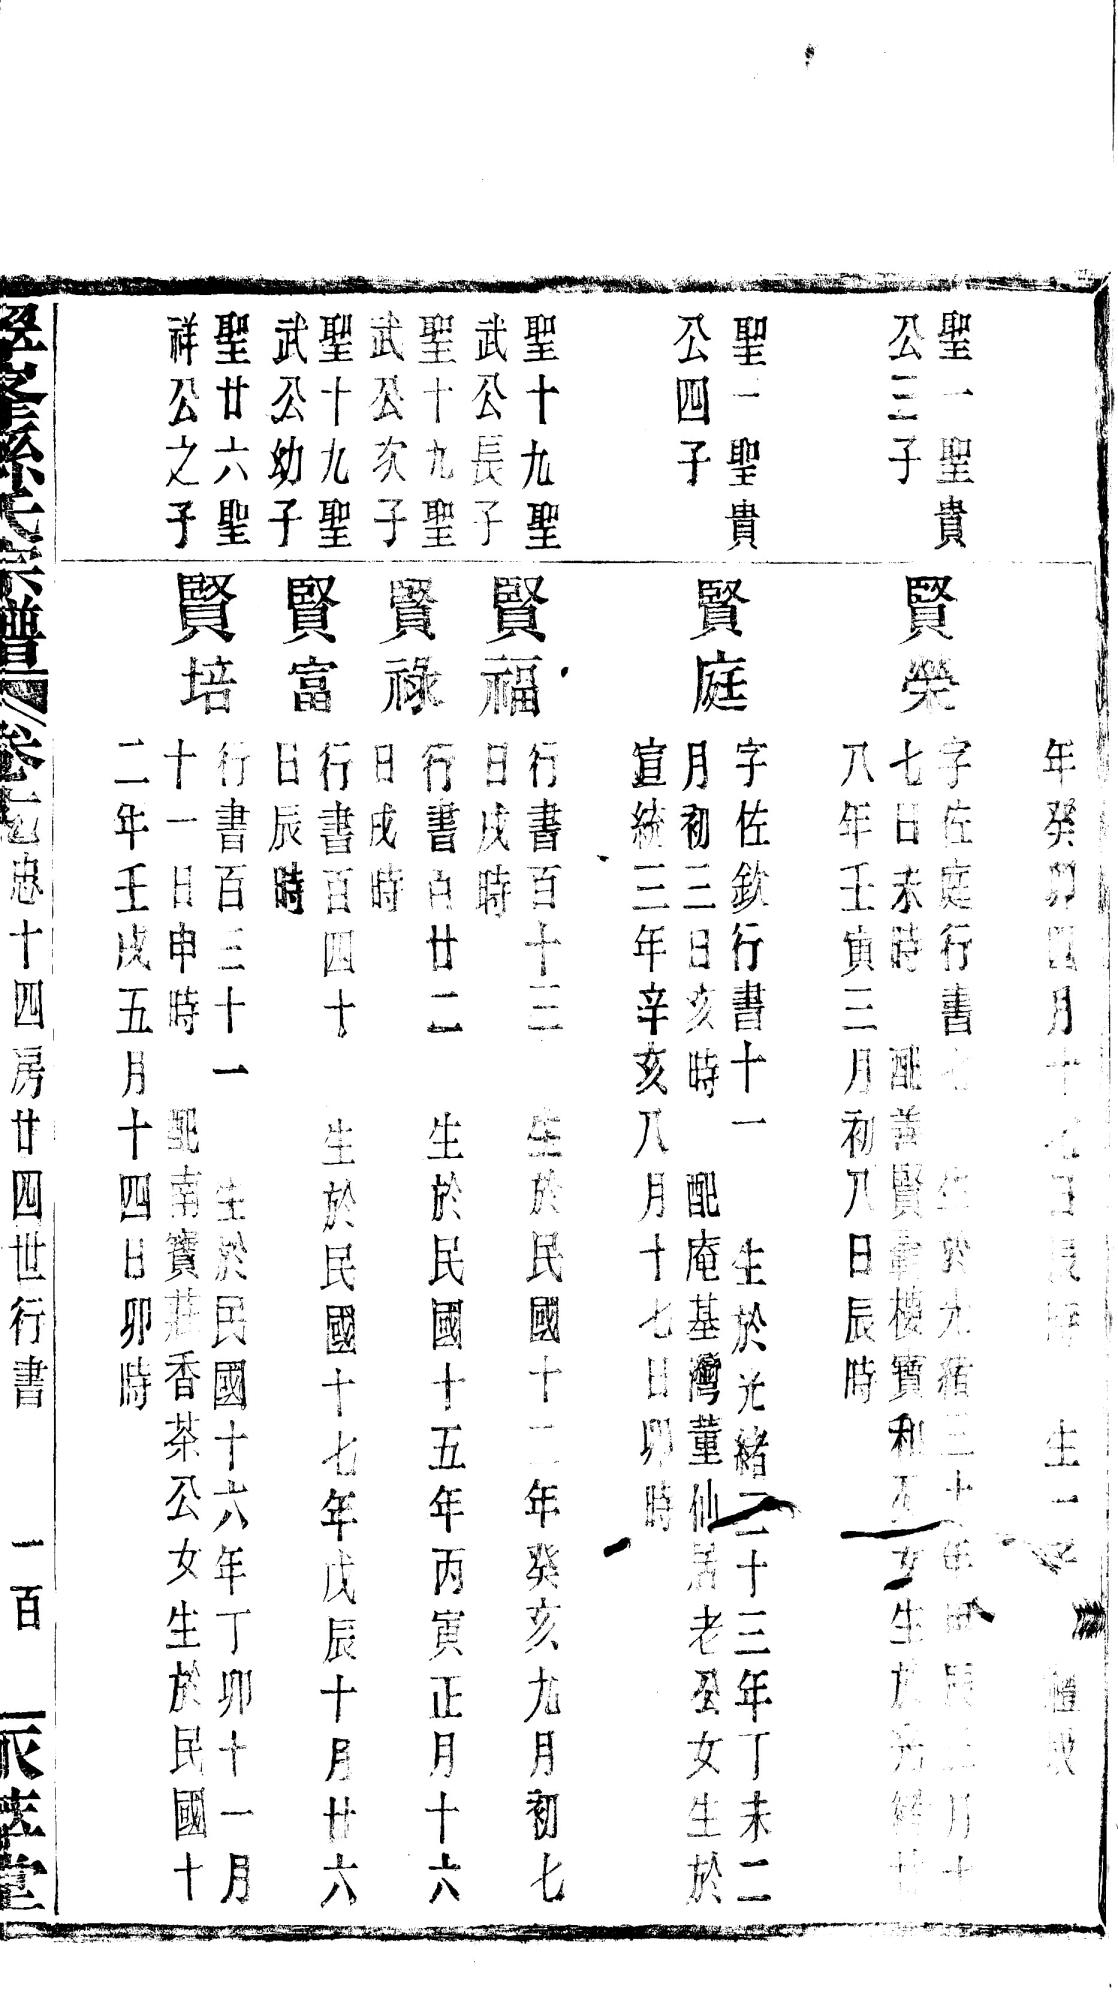 年癸卯四月十七日辰時 生一子 禮
聖一聖貴
公三子
賢榮
字佐庭行書七 生於光緒三十年甲辰二月十
七日未時 配善賢 樓寶和公女生於光緒廿
八年壬寅三月初八日辰時
聖一聖貴
公四子
賢庭
字佐欽行書十一 生於光緒三十三年丁未二
月初三日亥時 配庵基灣董仙居老公女生於
宣統三年辛亥八月十七日卯時
聖十九聖
武公長子
賢福
行書百十三 生於民國十二年癸亥九月初七
日戌時
聖十九聖
武公次子
賢祿
行書百廿二 生於民國十五年丙寅正月十六
日戌時
聖十九聖
武公幼子
賢富
行書百四十 生於民國十七年戊辰十月廿六
日辰時
聖廿六聖
祥公之子
賢培
行書百三十一 生於民國十六年丁卯十一月
十一日申時 配南寶莊香茶公女生於民國十
二年壬戌五月十四日卯時
峯孫氏宗譜 卷七 忠十四房廿四世行書 一百 堂